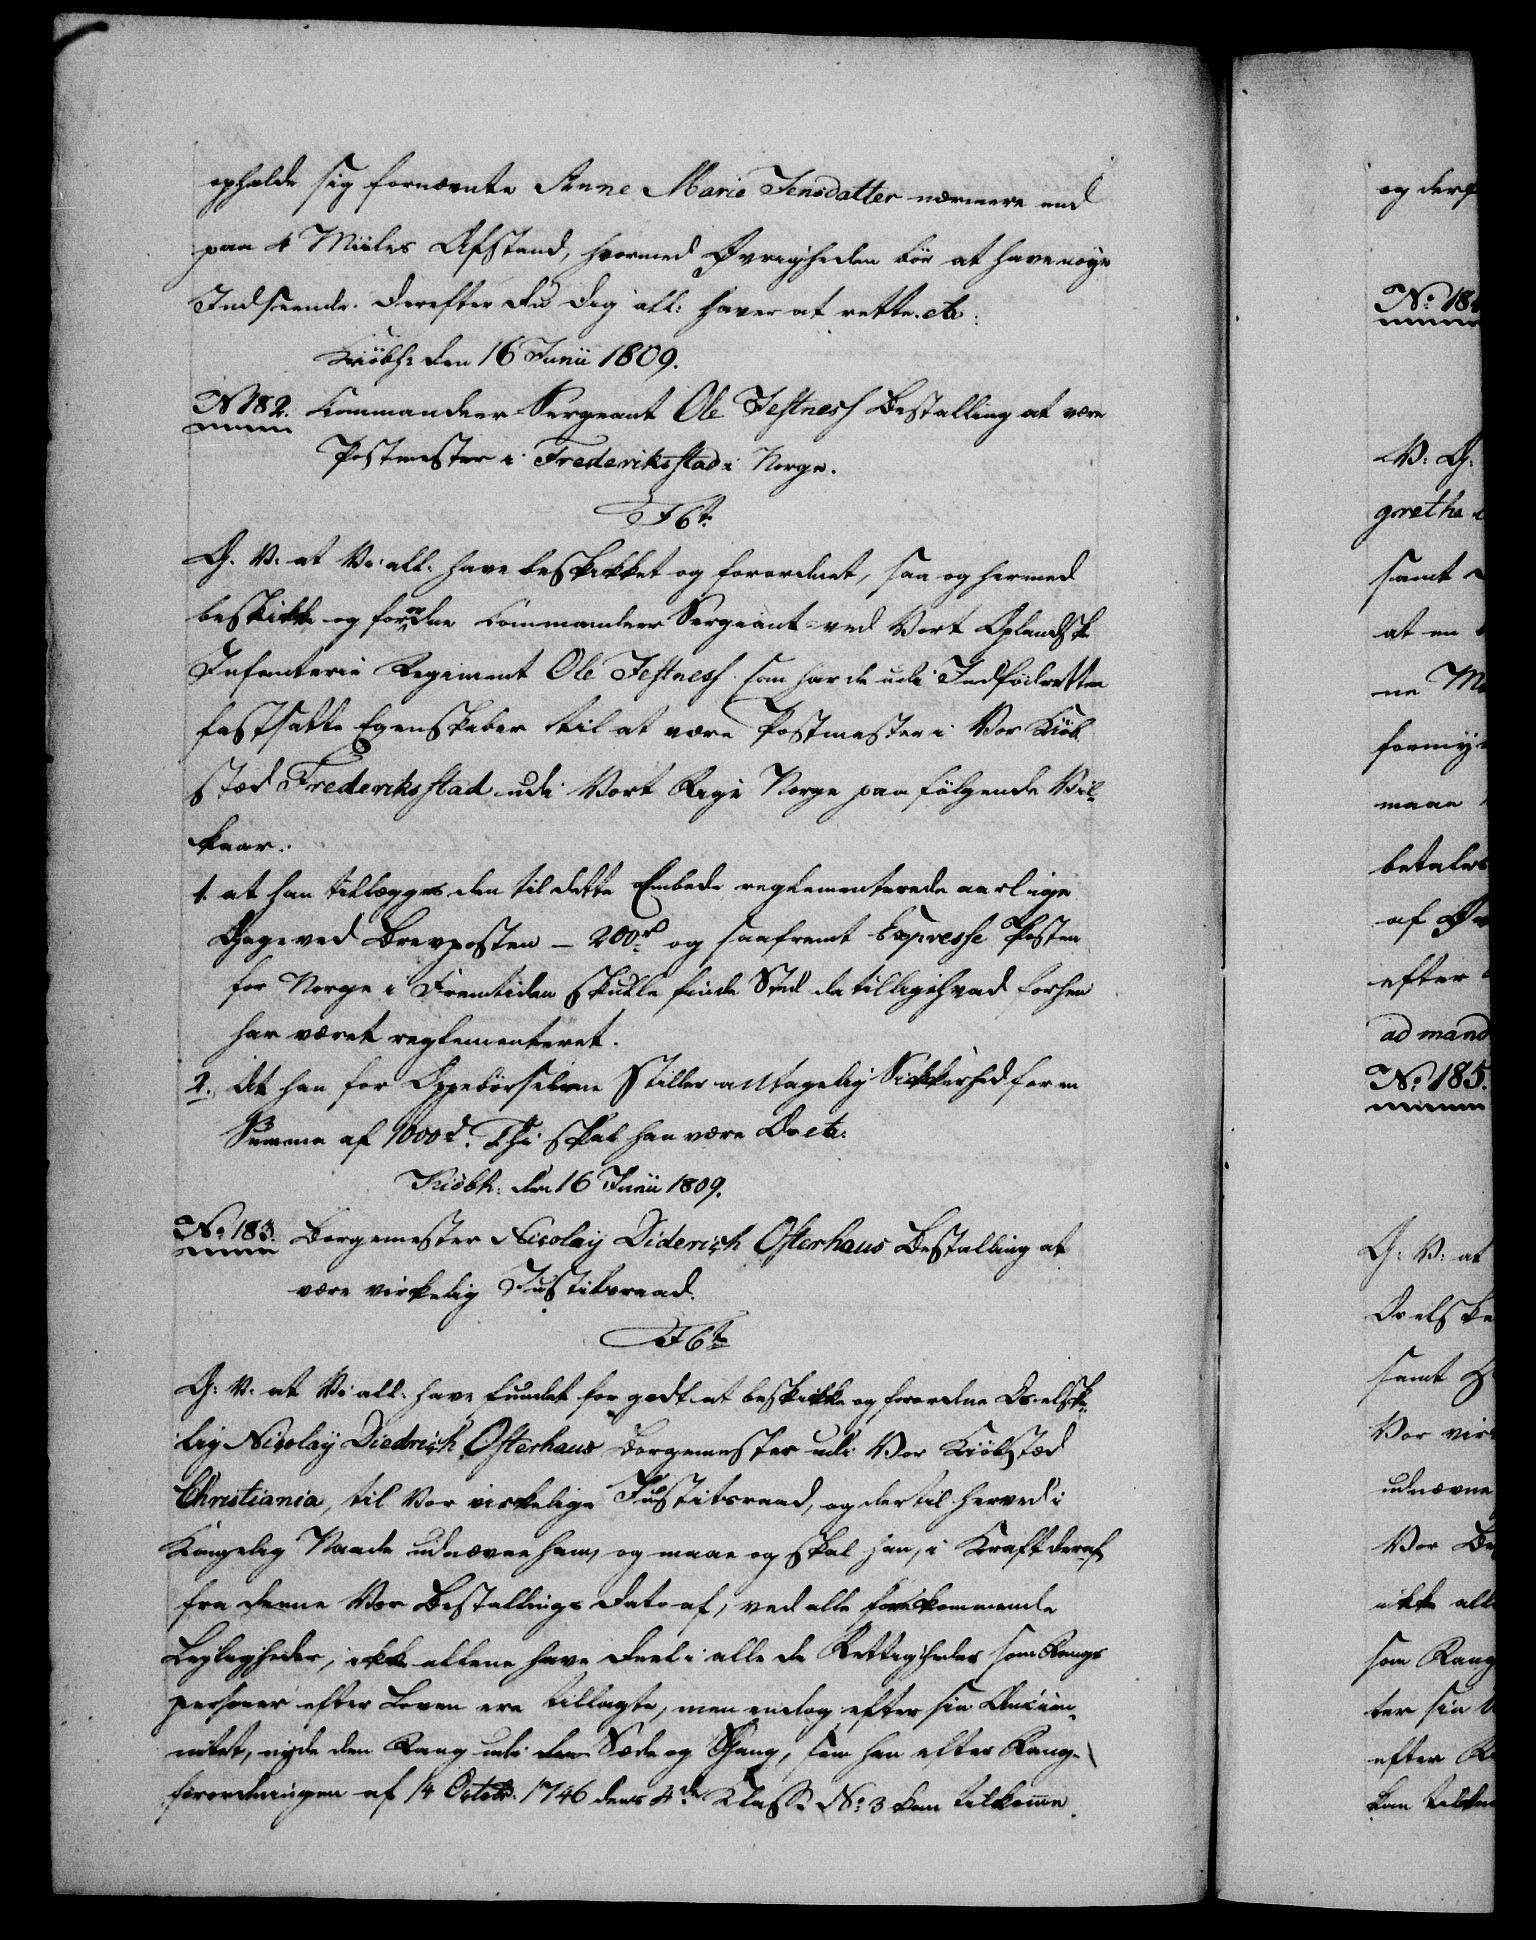 opholde sig fornævnte Anne Marie Jensdatter nærmere end
paa 4 Miiles Afstand, hvormed Øvrigheden bör at have nöye
Indseende. Derefter du dig all: haver at rette. etc:
Kiöbh: den 16 Junii 1809.
No 182. Commandeer Sergeant Ole Testness Bestalling at være
Postmester i Frederiksstad i Norge.
F 6te
G. V. at Vi all: have beskikket og forordnet, saa og hermed
beskikke og forordne Commandeer Sergeant ved Vort Oplandsk
Infanterie Regiment Ole Testness som har de udi Indfödretten
fastsatte Egenskaber til at være Postmester i Vor Kiöb
stæd Frederiksstad udi Vort Rige Norge paa fölgende Vil-
kaar:
1. at han tillægges den til dette Embede reglementerede aarlige
Gage ved Brevposten – 200 rd og saafremt Expresse Posten
for Norge i Fremtiden skulle finde Sted da tillige hvad forhen
har været reglementeret.
2. At han for Oppebörselerne stiller antagelig Sikkerhed for en
Summa af 1000 rd. Thi skal han være etc:
Kiöbh: den 16 Junii 1809.
No 183. Borgemester Nicolay Diderich Osterhaus Bestalling at
være virkelig Justitsraad.
F 6te
G: V. at Vi all: have fundet for godt at beskikke og forordne Os elske-
lig Nicolay Diedrich Osterhaus Borgemester udi Vor Kiöbstæd
Christiania, til Vor virkelige Justitsraad, og dertil herved i
Kongelig Naade udnævne ham, og maae og skal han, i Kraft deraf
fra denne Vor Bestallings Dato af, ved alle forekommende
Leyligheder, ikke allene have Deel i alle de Rettigheder som Rangs
personer efter Loven ere tillagte, men endog efter sin Ancien-
nitet, nyde den Rang udi Sæde og Gang, som han efter Rang-
forordningen af 14 Octob: 1746 dens 4de Classe No 3 kan tilkomme.
og derf
No 184
V: G:
grethe
samt
at en
ne M
formy
maae
betales
af Øv
efter
ad mand
No 185.
G: V: at
Os elske
samt
Vor vir
udnævne
Vor Be
ikke all
som Rang
ter sin
efter R
kan tilkom